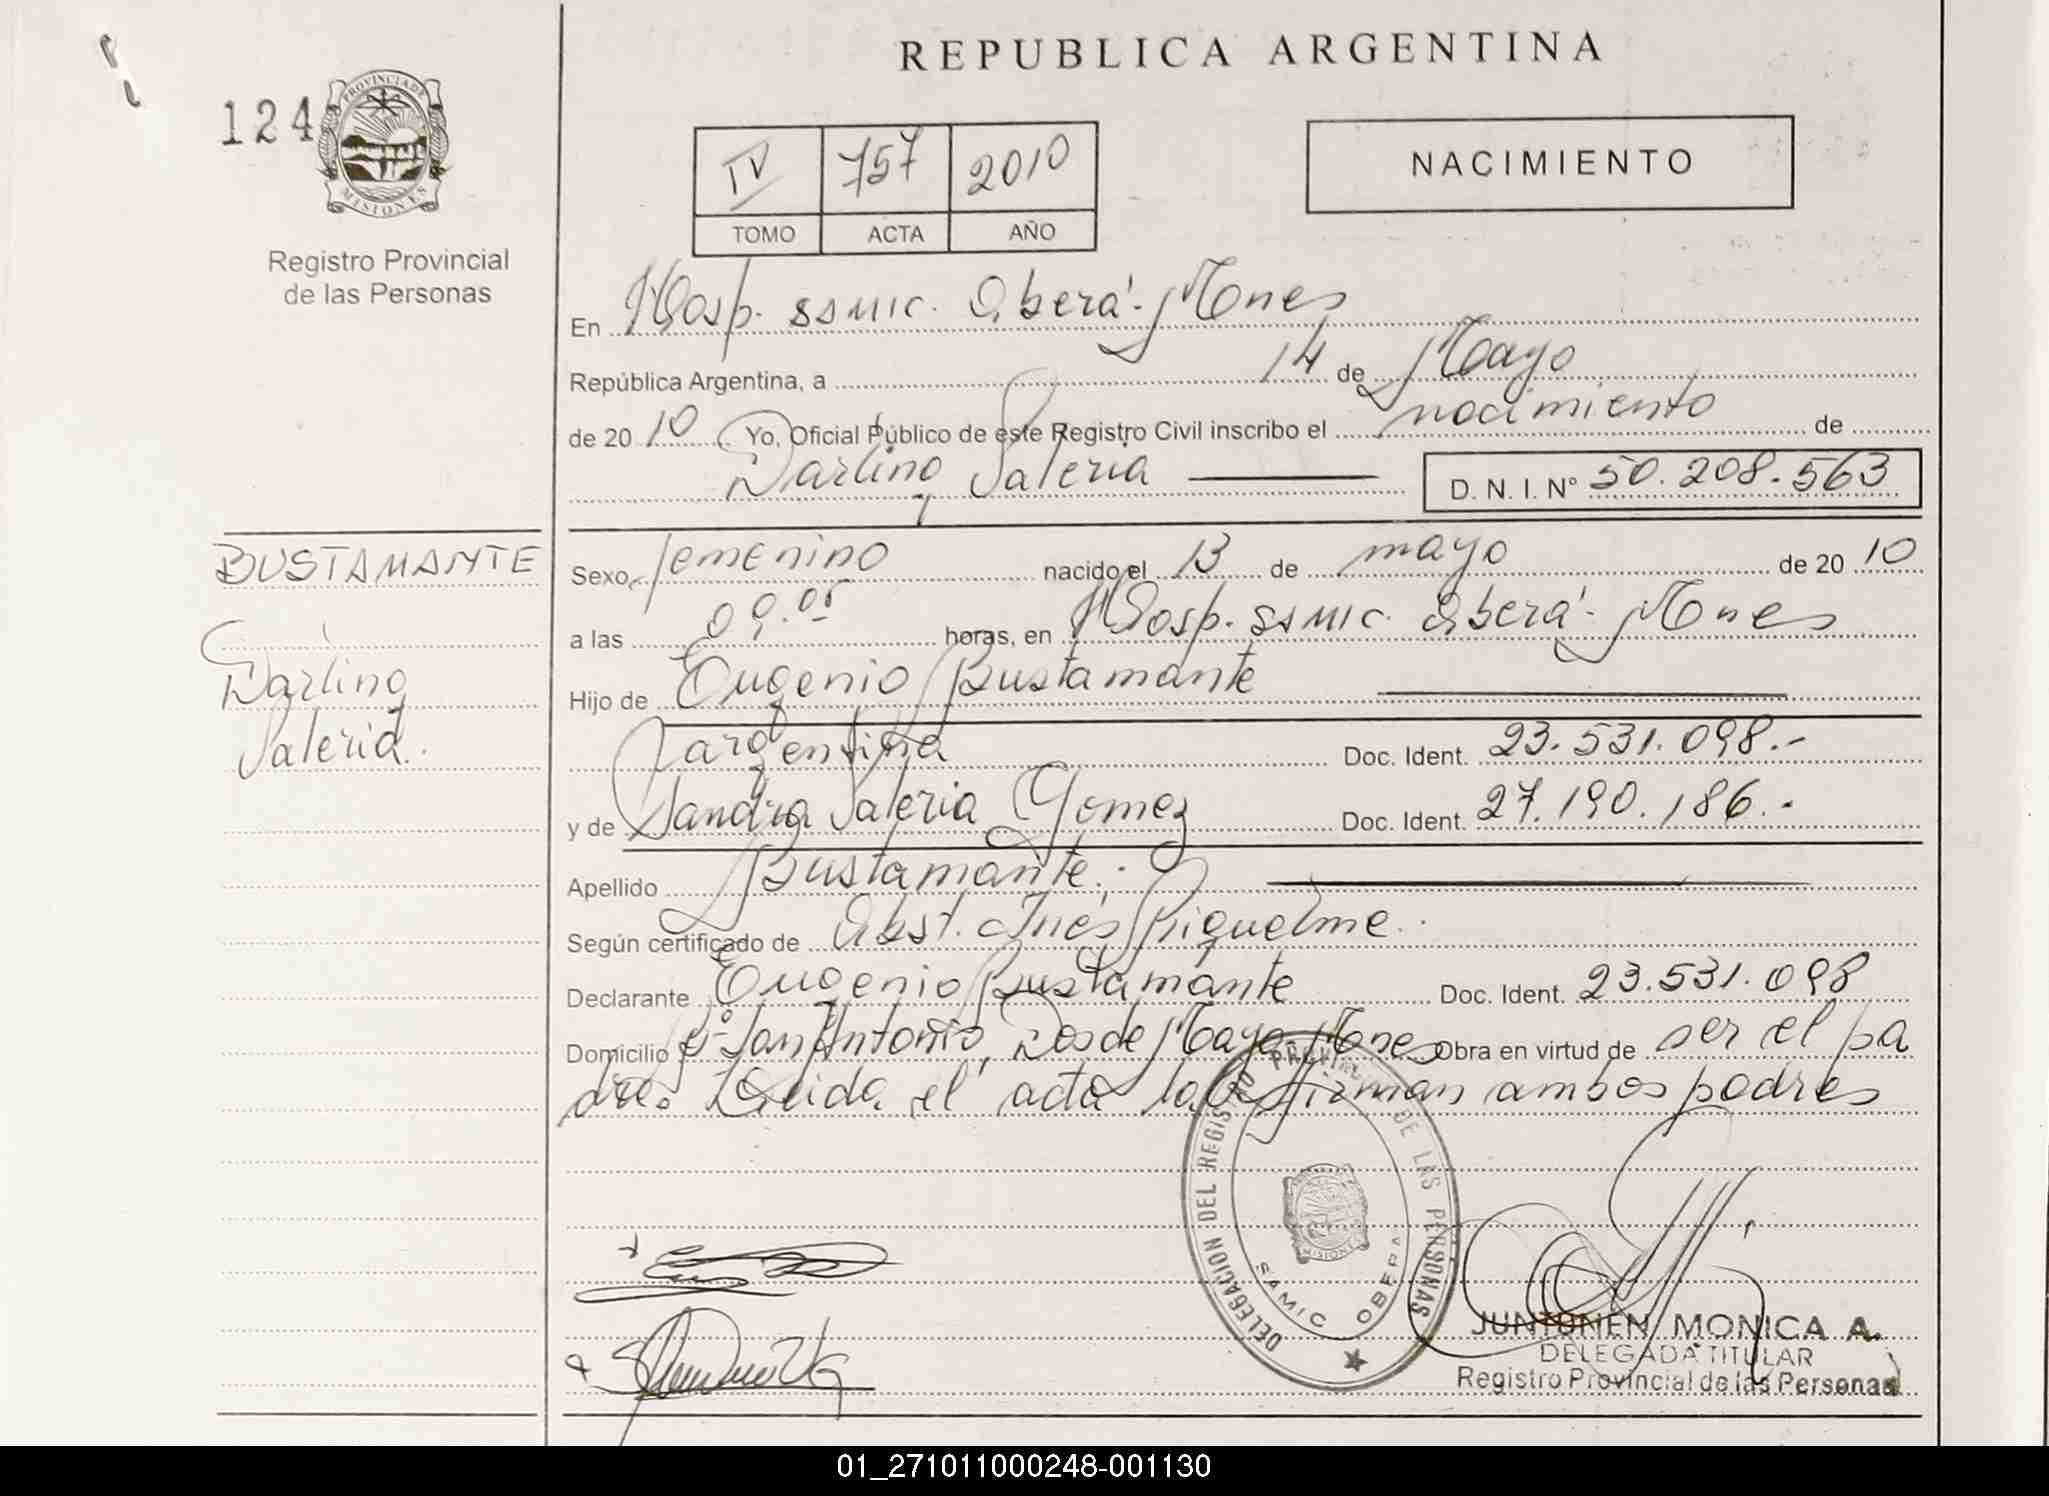 REPUBLICA ARGENTINA
124
PROVINCIA DE
MISIONES
Registro Provincial
de las Personas
IV 757 2010
TOMO ACTA AÑO
NACIMIENTO
En Hosp. SSMIC. Oberá - Mones
República Argentina, a 14 de Mayo
de 20 10 Yo, Oficial Público de este Registro Civil inscribo el nacimiento de
Darling Valeria
D. N. I. Nº 50.208.563
BUSTAMANTE
Darling
Valeria.
Sexo femenino nacido el 13 de mayo de 20 10
a las 09.05 horas, en Hosp. SSMIC. Oberá - Mones
Hijo de Eugenio Bustamante
argentina Doc. Ident. 23.531.098.-
y de Sandra Valeria Gomez Doc. Ident. 27.190.186.-
Apellido Bustamante.-
Según certificado de Obst. Inés Riquelme.
Declarante Eugenio Bustamante Doc. Ident. 23.531.098
Domicilio Bº San Antonio, Dos de Mayo Mones Obra en virtud de ser el pa
dre. Leida el acta la firman ambos padres
DELEGACION DEL REGISTRO PROVINCIAL DE LAS PERSONAS
MISIONES
SAMIC OBERA
JUNTONEN MONICA A.
DELEGADA TITULAR
Registro Provincial de las Personas
01_271011000248-001130